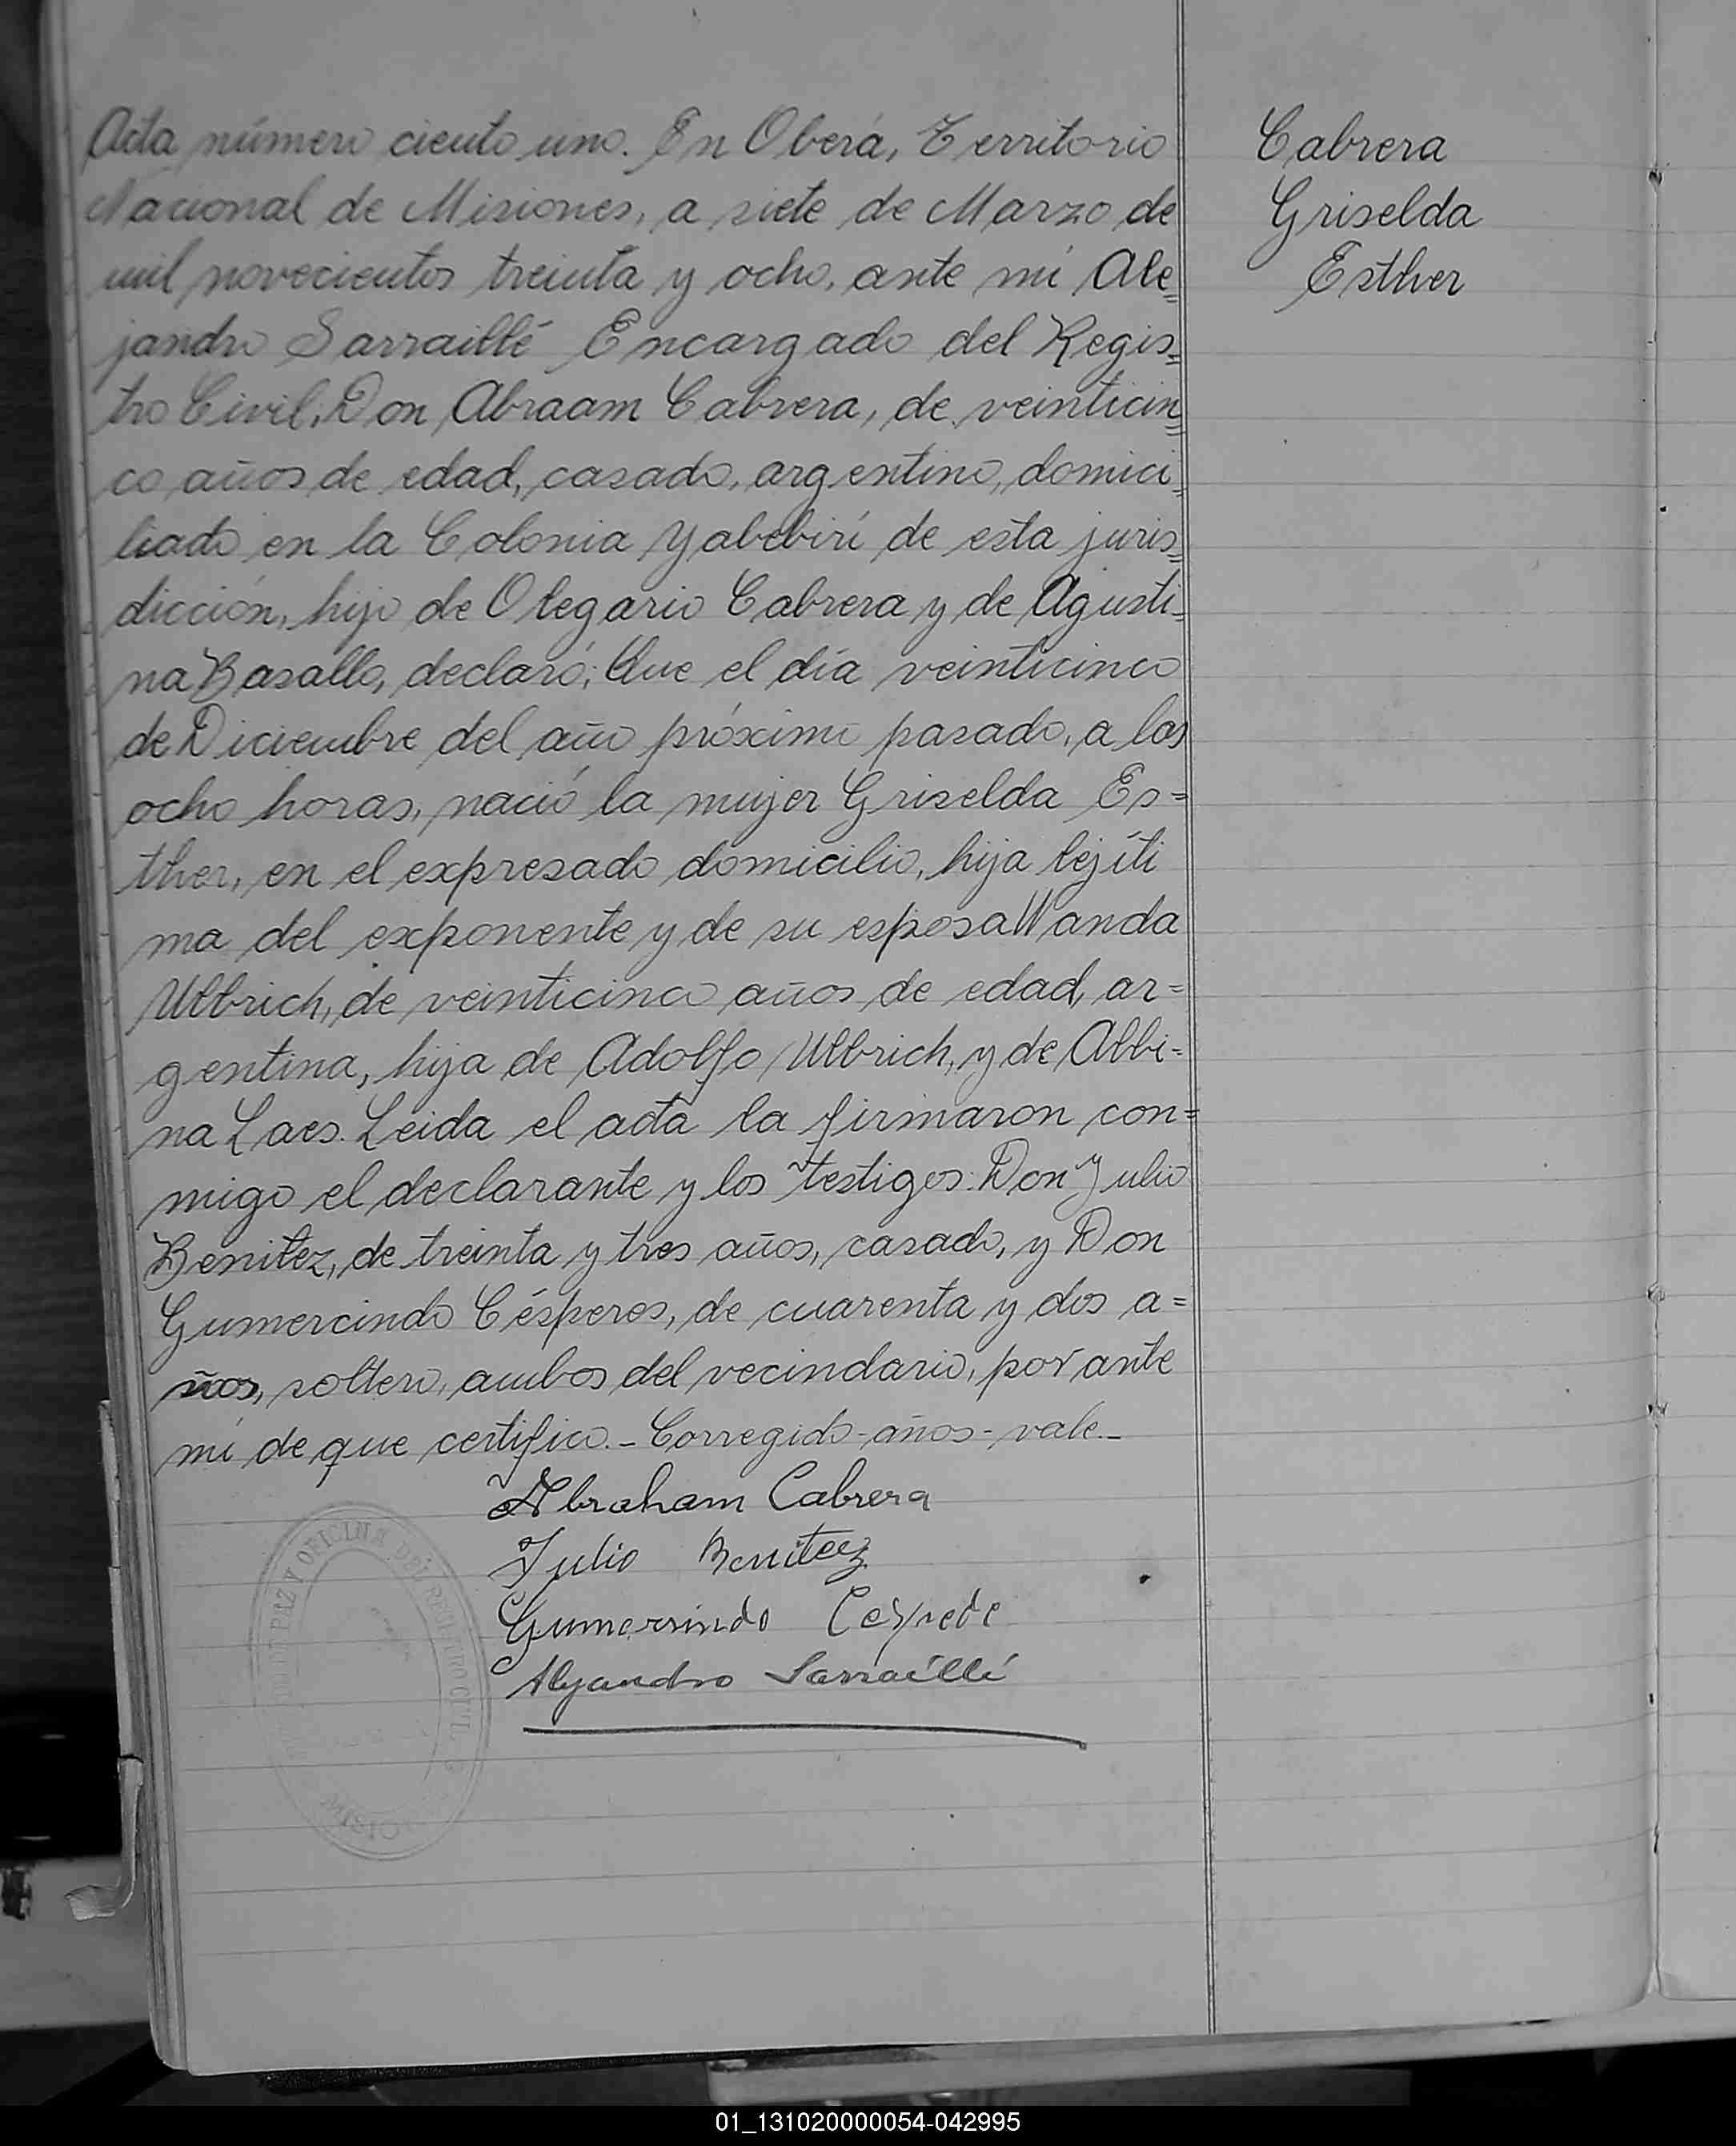 Acta número ciento uno. En Oberá, Territorio
Nacional de Misiones, a siete de Marzo de
mil novecientos treinta y ocho, ante mi Ale=
jandro Sarraillé Encargado del Regis=
tro Civil, Don Abraam Cabrera, de veinticin=
co años de edad, casado, argentino, domici=
liado en la Colonia Yabebirí de esta juris=
dicción, hijo de Olegario Cabrera y de Agusti=
na Basallo, declaró: Que el día veinticinco
de Diciembre del año próximo pasado, a las
ocho horas, nació la mujer Griselda Es=
ther, en el expresado domicilio, hija lejíti
ma del exponente y de su esposa Wanda
Ulbrich, de veinticinco años de edad, ar=
gentina, hija de Adolfo Ulbrich, y de Albi=
na Laes. Leida el acta la firmaron con=
migo el declarante y los testigos: Don Julio
Benitez, de treinta y tres años, casado, y Don
Gumercindo Césperes, de cuarenta y dos a=
ños, soltero, ambos del vecindario, por ante
mi de que certifico.- Corregido-años-vale.-
Abraham Cabrera
Julio Benitez
Gumersindo Cespede
Alejandro Sarraillé
Cabrera
Griselda
Esther
PAZ Y OFICINA DEL REGISTRO CIVIL
01_131020000054-042995